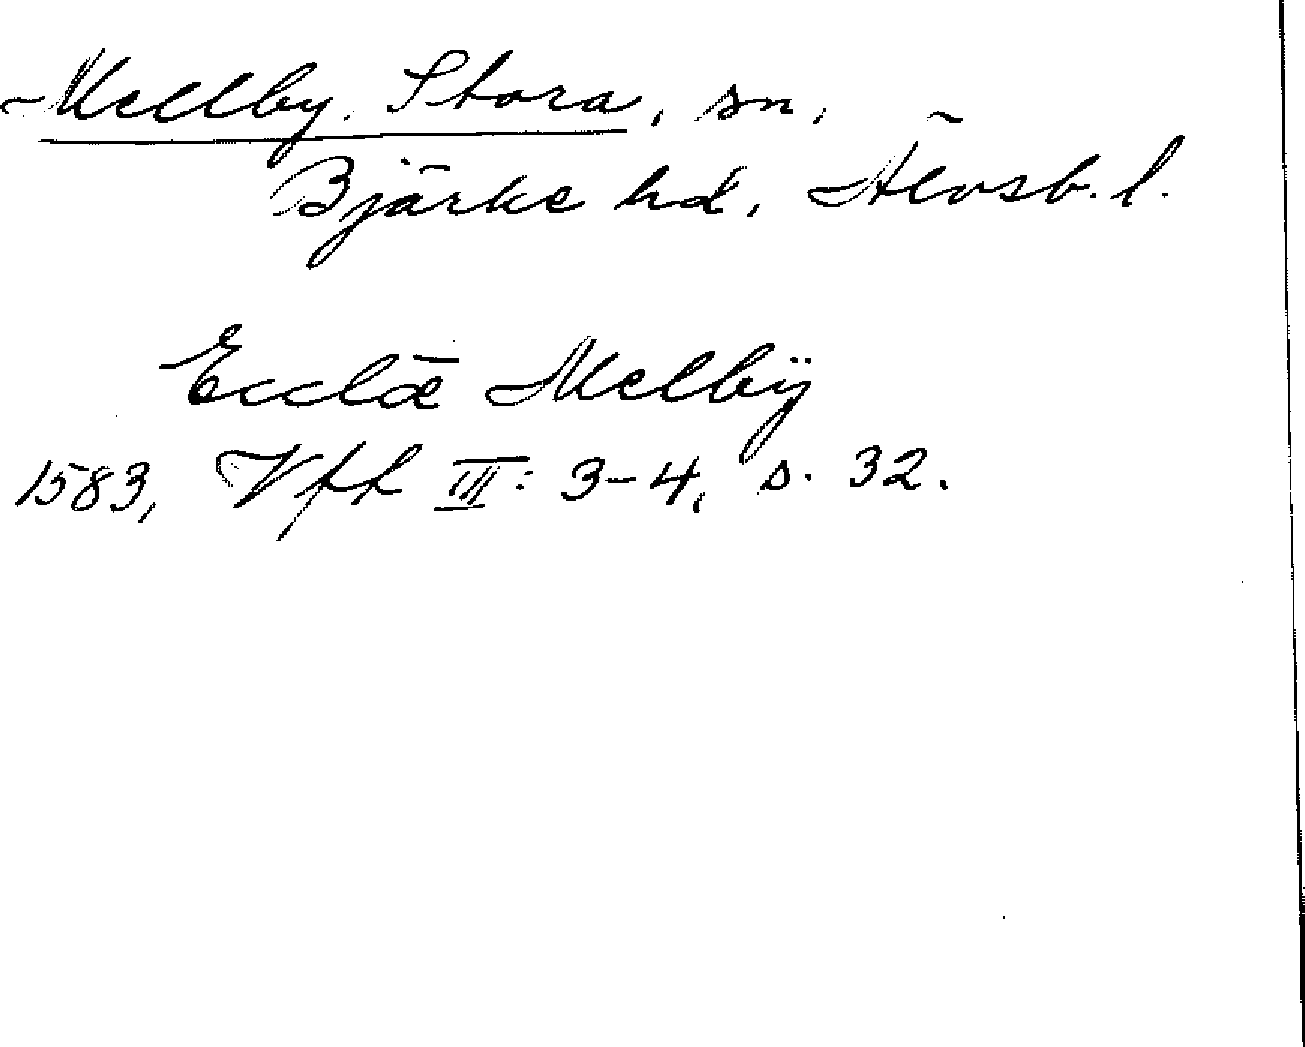 Mellby, Stora, sn,
Bjärke hd, Älvsb. l.
Ecclæ̅ Melbÿ
1583, Vfft III: 3-4, s. 32.